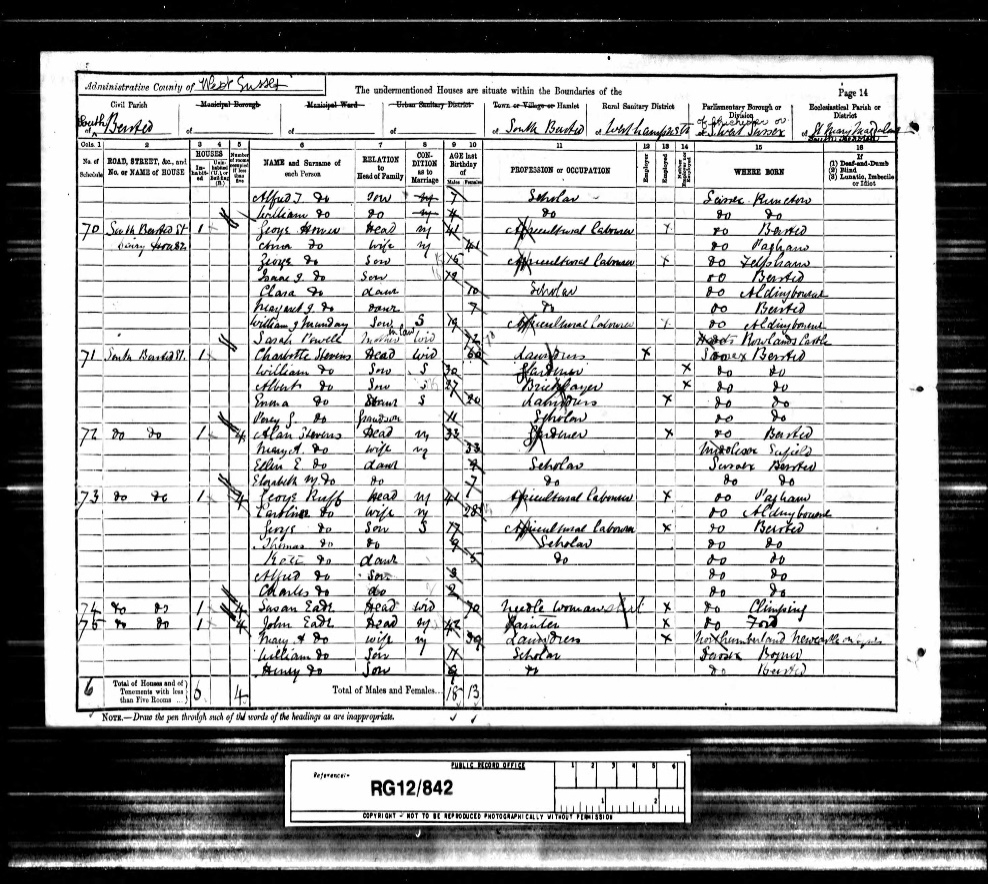 Administrative County of West Sussex
The undermentioned Houses are situate within the Boundaries of the
Page 14
Civil Parish
Municipal Borough
Municipal Ward
Urban Sanitary District
Town or Village or Hamlet
Rural Sanitary District
Parliamentary Borough or Division
Ecclesiastical Parish or District
South
of Bersted
of
of
of
of South Bersted
of Westhampnett
of S. West Sussex
of St Mary Magdalene
Cols. 1 2 3 4 5 6 7 8 9 10 11 12 13 14 15 16
No. of Schedule
ROAD, STREET, &c., and No. or NAME of HOUSE
HOUSES
Inhabited
Uninhabited (U.), or Building (B.)
Number of rooms occupied if less than five
NAME and Surname of each Person
RELATION to Head of Family
CONDITION as to Marriage
AGE last Birthday of
Males
Females
PROFESSION or OCCUPATION
Employer
Employed
Neither Employer nor Employed
WHERE BORN
If (1) Deaf-and-Dumb (2) Blind (3) Lunatic, Imbecile or Idiot
Alfred J. do Son 7 Scholar Sussex Runcton
William do do 4 do do do
70 South Bersted St 1 George Homer Head M 41 Agricultural Labourer X do Bersted
Dairy House Anna do Wife M 41 do Pagham
George do Son 15 Agricultural Labourer X do Felpham
Isaac J. do Son 12 do Bersted
Clara do Daur 10 Scholar do Aldingbourne
Margaret J. do Daur 7 do do Bersted
William J Munday Son S 19 Agricultural Labourer X do Aldingbourne
Sarah Powell Mother in Law Wid 72 Hants Rowlands Castle
71 South Bersted St. 1 Charlotte Stevens Head Wid 60 Laundress X Sussex Bersted
William do Son S 30 Gardener X do do
Albert do Son S 27 Bricklayer X do do
Emma do Daur S 20 Laundress X do do
Percy G. do Grandson 11 Scholar do do
72 do do 1 4 Alan Stevens Head M 32 Gardener X do Bersted
Mary A. do Wife M 33 Middlesex Enfield
Ellen E. do Daur 9 Scholar Sussex Bersted
Elizabeth M. do do 7 do do do
73 do do 1 4 George Ruff Head M 41 Agricultural Labourer X do Pagham
Caroline do Wife M 28 do Aldingbourne
George do Son S 17 Agricultural Labourer X do Bersted
Thomas do do 9 Scholar do do
Kate do Daur 5 do do do
Alfred do Son 3 do do
Charles do do 2 do do
74 do do 1 4 Susan Eade Head Wid 70 Needle Woman X do Climping
75 do do 1 4 John Eade Head M 42 Painter X do Ford
Mary A do Wife M 39 Laundress X Northumberland Newcastle on Tyne
William do Son 11 Scholar Sussex Bognor
Henry do Son 9 do do Bersted
6 Total of Houses and of Tenements with less than Five Rooms 6 4 Total of Males and Females... 18 13
NOTE.—Draw the pen through such of the words of the headings as are inappropriate.
PUBLIC RECORD OFFICE
1 2 3 4 5 6
Reference:-
RG12/842
1 2
COPYRIGHT - NOT TO BE REPRODUCED PHOTOGRAPHICALLY WITHOUT PERMISSION